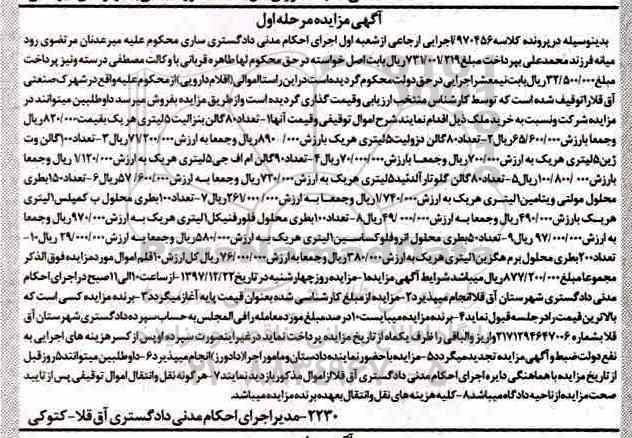 آگهی مزایده مرحله اول
بدینوسیله در پرونده کلاسه ۹۷۰۴۵۶/اجرایی ارجاعی از شعبه اول اجرای احکام مدنی دادگستری ساری محکوم علیه میرعدنان مرتضوی رود
میانه فرزند محمدعلی بپرداخت مبلغ ۷۳۱/۰۰۱/۲۱۹ریال بابت اصل خواسته در حق محکوم لها طاهره قربانی با وکالت مصطفی درسته ونیز پرداخت
مبلغ ۳۲/۵۰۰/۰۰۰ریال بابت نیمعشر اجرایی در حق دولت محکوم گردیده است در این راستا اموالی (اقلام دارویی) از محکوم علیه واقع در شهرک صنعتی
آق قلا توقیف شده است که توسط کارشناس منتخب ارزیابی و قیمت گذاری گردیده است و از طریق مزایده بفروش میرسد داوطلبین میتوانند در
مزایده شرکت ونسبت به خرید ملک ذیل اقدام نمایند شرح اموال توقیفی و قیمت آنها ۱-تعداد ۸۰گالن بنزالیت ۵لیتری هریک بقیمت ۸۲۰/۰۰۰ریال
وجمعا بارزش ۶۵/۶۰۰/۰۰۰ریال ۲-تعداد ۸۰گالن دزولیت ۵لیتری هریک بارزش ۸۹۰/۰۰۰ریال وجمعا به ارزش ۷۱/۲۰۰/۰۰۰ریال ۳-تعداد ۱۰۰گالن وت
ژین ۵لیتری هریک به ارزش ۷۰۰/۰۰۰ریال وجمعا بارزش ۷۰/۰۰۰/۰۰۰ریال ۴-تعداد ۹۰گالن ام اف جی ۵لیتری هریک به ارزش ۱/۱۲۰/۰۰۰ریال وجمعا
بارزش ۱۰۰/۸۰۰/۰۰۰ریال ۵-تعداد ۸۰گالن گلوتارآلدئید ۵لیتری هریک به ارزش ۷۲۰/۰۰۰ریال وجمعا به ارزش ۵۷/۶۰۰/۰۰۰ریال ۶-تعداد ۱۵۰بطری
محلول مولتی ویتامین ۱لیتری هریک به ارزش ۱/۷۴۰/۰۰۰ریال وجمعا به ارزش ۲۶۱/۰۰۰/۰۰۰ریال ۷-تعداد ۱۰۰بطری محلول ب کمپلس ۱لیتری
هریک بارزش ۴۹۰/۰۰۰ریال وجمعا به ارزش ۴۹/۰۰۰/۰۰۰ریال ۸-تعداد ۱۰۰بطری محلول فلورفنیکل ۱لیتری هریک به ارزش ۹۷۰/۰۰۰ریال وجمعا
به ارزش ۹۷/۰۰۰/۰۰۰ریال ۹-تعداد ۵۰بطری محلول انروفلوکساسین ۱لیتری هریک به ارزش ۵۸۰/۰۰۰ریال وجمعا به ارزش ۲۹/۰۰۰/۰۰۰ ریال ۱۰-
تعداد ۲۰۰بطری محلول برم هگزین ۱لیتری هریک به ارزش ۳۸۰/۰۰۰ریال وجمعا به ارزش ۷۶/۰۰۰/۰۰۰ریال کل ارزش ۱۰قلم اموال مورد مزایده فوق الذکر
مجموعا مبلغ ۸۷۷/۲۰۰/۰۰۰ریال میباشد شرایط آگهی مزایده ۱-مزایده روز چهارشنبه در تاریخ ۱۳۹۷/۱۲/۲۲ از ساعت ۱۰الی ۱۱صبح در اجرای احکام
مدنی دادگستری شهرستان آق قلا انجام میپذیرد ۲-مزایده از مبلغ کارشناسی شده بعنوان قیمت پایه آغاز میگردد ۳-برنده مزایده کسی است که
بالاترین قیمت را در جلسه قبول نماید ۴-برنده مزایده میبایست ۱۰درصد مبلغ مورد معامله رافی المجلس به حساب سپرده دادگستری شهرستان آق
قلا بشماره ۲۱۷۱۲۹۴۶۴۷۰۰۶ واریز والباقی را ظرف یکماه از تاریخ مزایده پرداخت نماید در غیر اینصورت سپرده او پس از کسر هزینه های اجرایی به
نفع دولت ضبط و آگهی مزایده تجدید میگردد ۵-مزایده با حضور نماینده دادستان و مامور اجرا (دادورز) انجام میپذیرد ۶-داوطلبین میتوانند ۵روز قبل
از تاریخ مزایده با هماهنگی دایره اجرای احکام مدنی دادگستری آق قلا از اموال مذکور بازدید نمایند ۷-هرگونه نقل وانتقال اموال توقیفی پس از تایید
صحت مزایده از ناحیه دادگاه میباشد ۸-کلیه هزینه های نقل وانتقال بعهده برنده مزایده میباشد.
۲۲۳۰-مدیر اجرای احکام مدنی دادگستری آق قلا-کتوکی